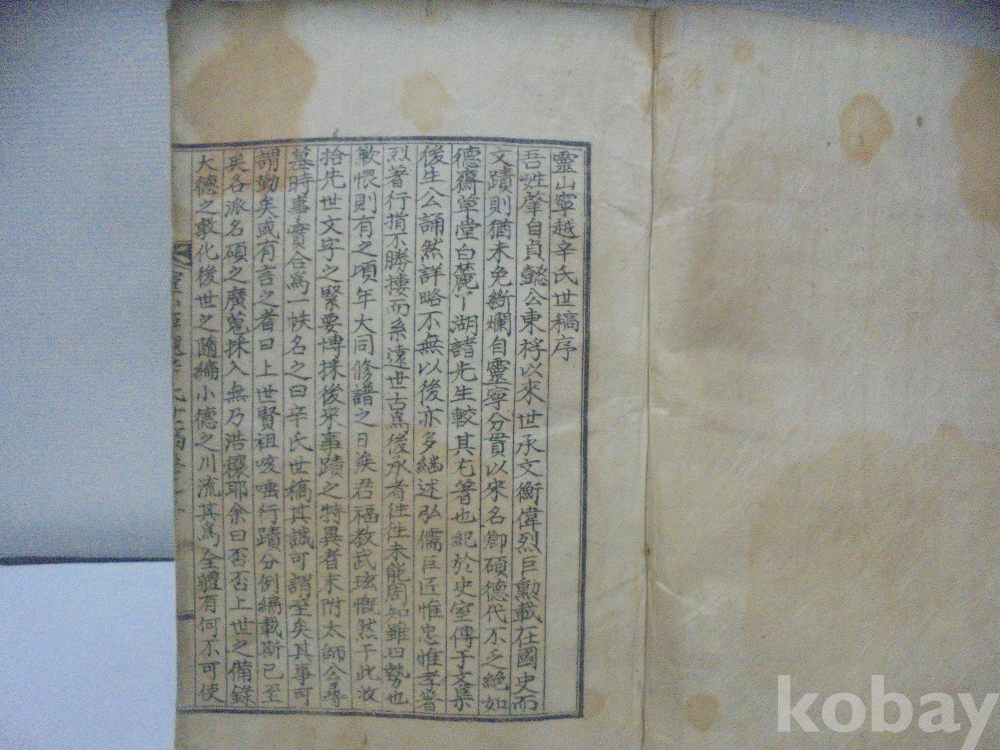 靈山寧越辛氏世稿序
吾姓肇自貞懿公東桴以來世承文衡偉烈巨勳載在國史而
文蹟則猶未免斷爛自靈寧分貫以來名卿碩德代不乏絶如
德齋草堂白麓丫湖諸先生較其尤著也紀於史室傳于文集
後生公誦然詳略不無以後亦多繼述弘儒巨匠惟忠惟孝普
烈著行指不勝摟而系遠世古爲後承者往往未能周知雖曰勢也
歎恨則有之頃年大同修譜之日族君福教武玹慨然于此收
拾先世文字之緊要博採後來事蹟之特異者末附太師公尋
墓時事實合爲一帙名之曰辛氏世稿其誠可謂至矣其事可
謂勤矣或有言之者曰上世賢祖咳唾行蹟分例編載斯已至
矣各派名碩之廣蒐採入無乃浩穰耶余曰否否上世之備錄
大德之敦化後世之隨編小德之川流其爲全體有何不可使
kobay